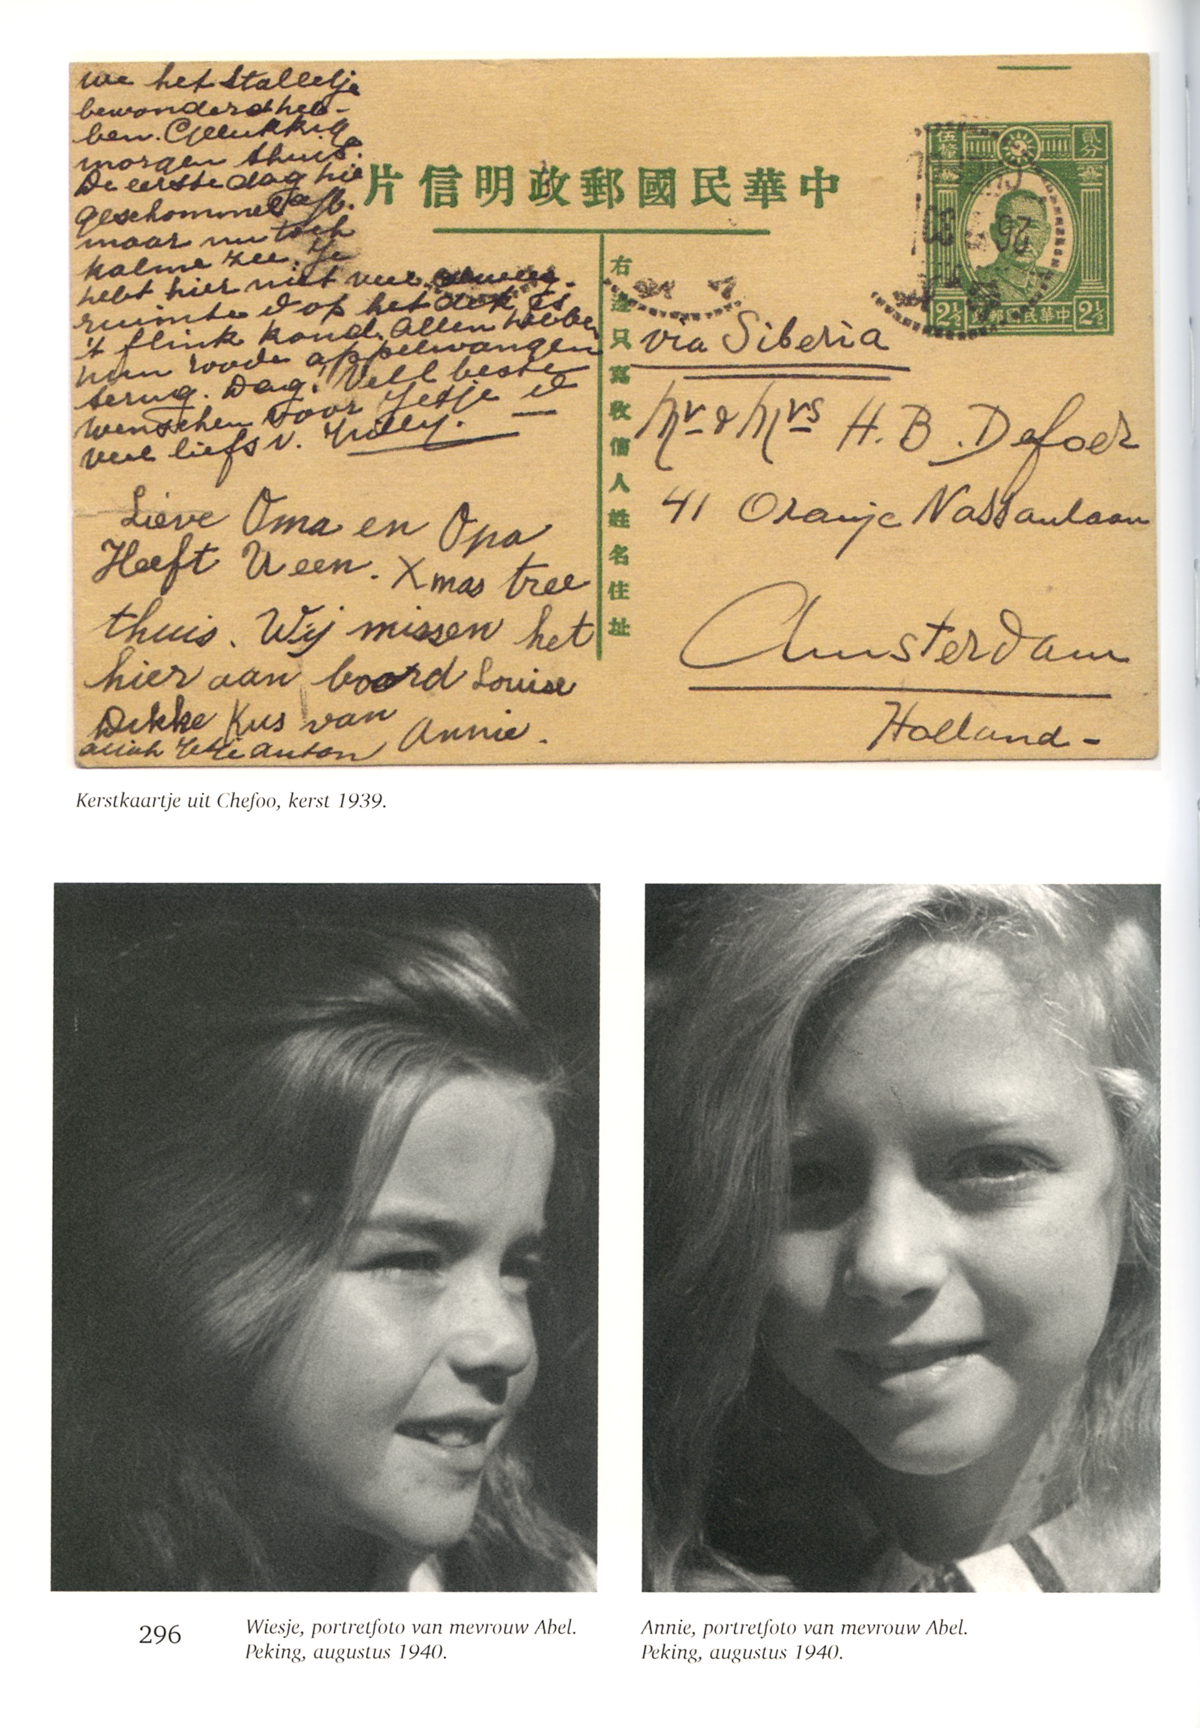 we het stalletje
bewonderd heb-
ben. Gelukkig
morgen thuis.
De eerste dag
geschommeld
maar nu toch
kalme zee. Je
hebt hier niet veel
ruimte & op het dek is
't flink koud. Allen hebben
hun roode appelwangen
terug. Dag! Veel beste
wenschen voor Jetje &
veel liefs v. Willy.
Lieve Oma en Opa
Heeft U een Xmas tree
thuis. Wij missen het
hier aan boord Louise
Dikke Kus van Annie.
Anton
片信明政郵國民華中
右邊只寫收信人姓名住址
伍 貳分
2½ 中華民國郵政 2½
26
via Siberia
Mr & Mrs H. B. Defoer
41 Oranje Nassaulaan
Amsterdam
Holland -
Kerstkaartje uit Chefoo, kerst 1939.
296
Wiesje, portretfoto van mevrouw Abel.
Peking, augustus 1940.
Annie, portretfoto van mevrouw Abel.
Peking, augustus 1940.